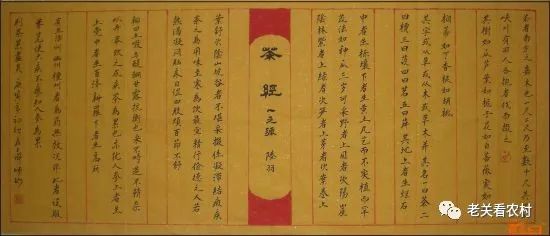 茶者南方之嘉木也一尺二尺乃至數十尺其巴山
峽川有兩人合抱者伐而掇之
其樹如瓜蘆葉如梔子花如白薔薇實如
栟櫚蒂如丁香根如胡桃
其字或從草或從木或草木并其名一曰茶二
曰檟三曰蔎四曰茗五曰荈其地上者生爛石
中者生礫壤下者生黃土凡藝而不實植而罕
茂法如種瓜三歲可采野者上園者次陽崖
陰林紫者上綠者次笋者上芽者次葉卷上
茶經
一之源
陸羽
葉舒次陰山坡谷者不堪采掇性凝滯結瘕疾
茶之為用味至寒為飲最宜精行儉德之人若
熱渴凝悶腦疼目澀四肢煩百節不舒
聊四五啜與醍醐甘露抗衡也采不時造不精雜
以卉莽飲之成疾茶為累也亦猶人參上者生
上黨中者生百濟新羅下者生高麗
有生澤州幽州檀州者為藥無效況非此者設服
薺苨使六疾不瘳知人參為累
則茶累盡矣
老关看农村